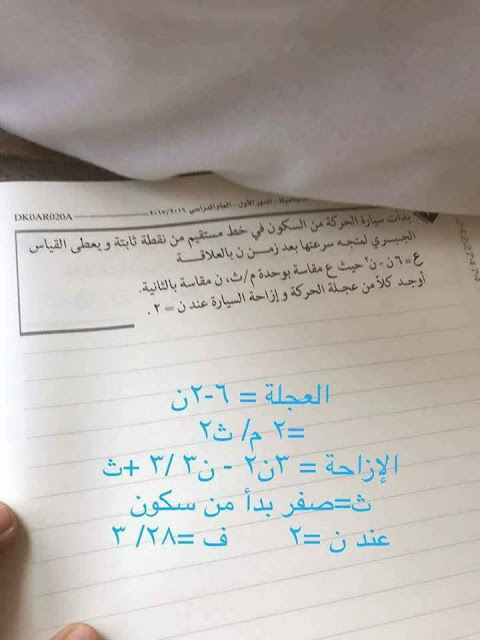 ديناميكا - الدور الأول - العام الدراسي ٢٠١٧/٢٠١٦
DK0AR020A
بدأت سيارة الحركة من السكون في خط مستقيم من نقطة ثابتة ويعطى القياس
الجبري لمتجه سرعتها بعد زمن ن بالعلاقة
ع = ٦ ن - ن٢ حيث ع مقاسة بوحدة م/ث، ن مقاسة بالثانية.
أوجد كلاً من عجلة الحركة وإزاحة السيارة عند ن = ٢ .
العجلة = ٦-٢ن
=٢ م/ ث٢
الإزاحة = ٣ن٢ - ن٣ /٣ +ث
ث=صفر بدأ من سكون
عند ن =٢ ف =٢٨/ ٣